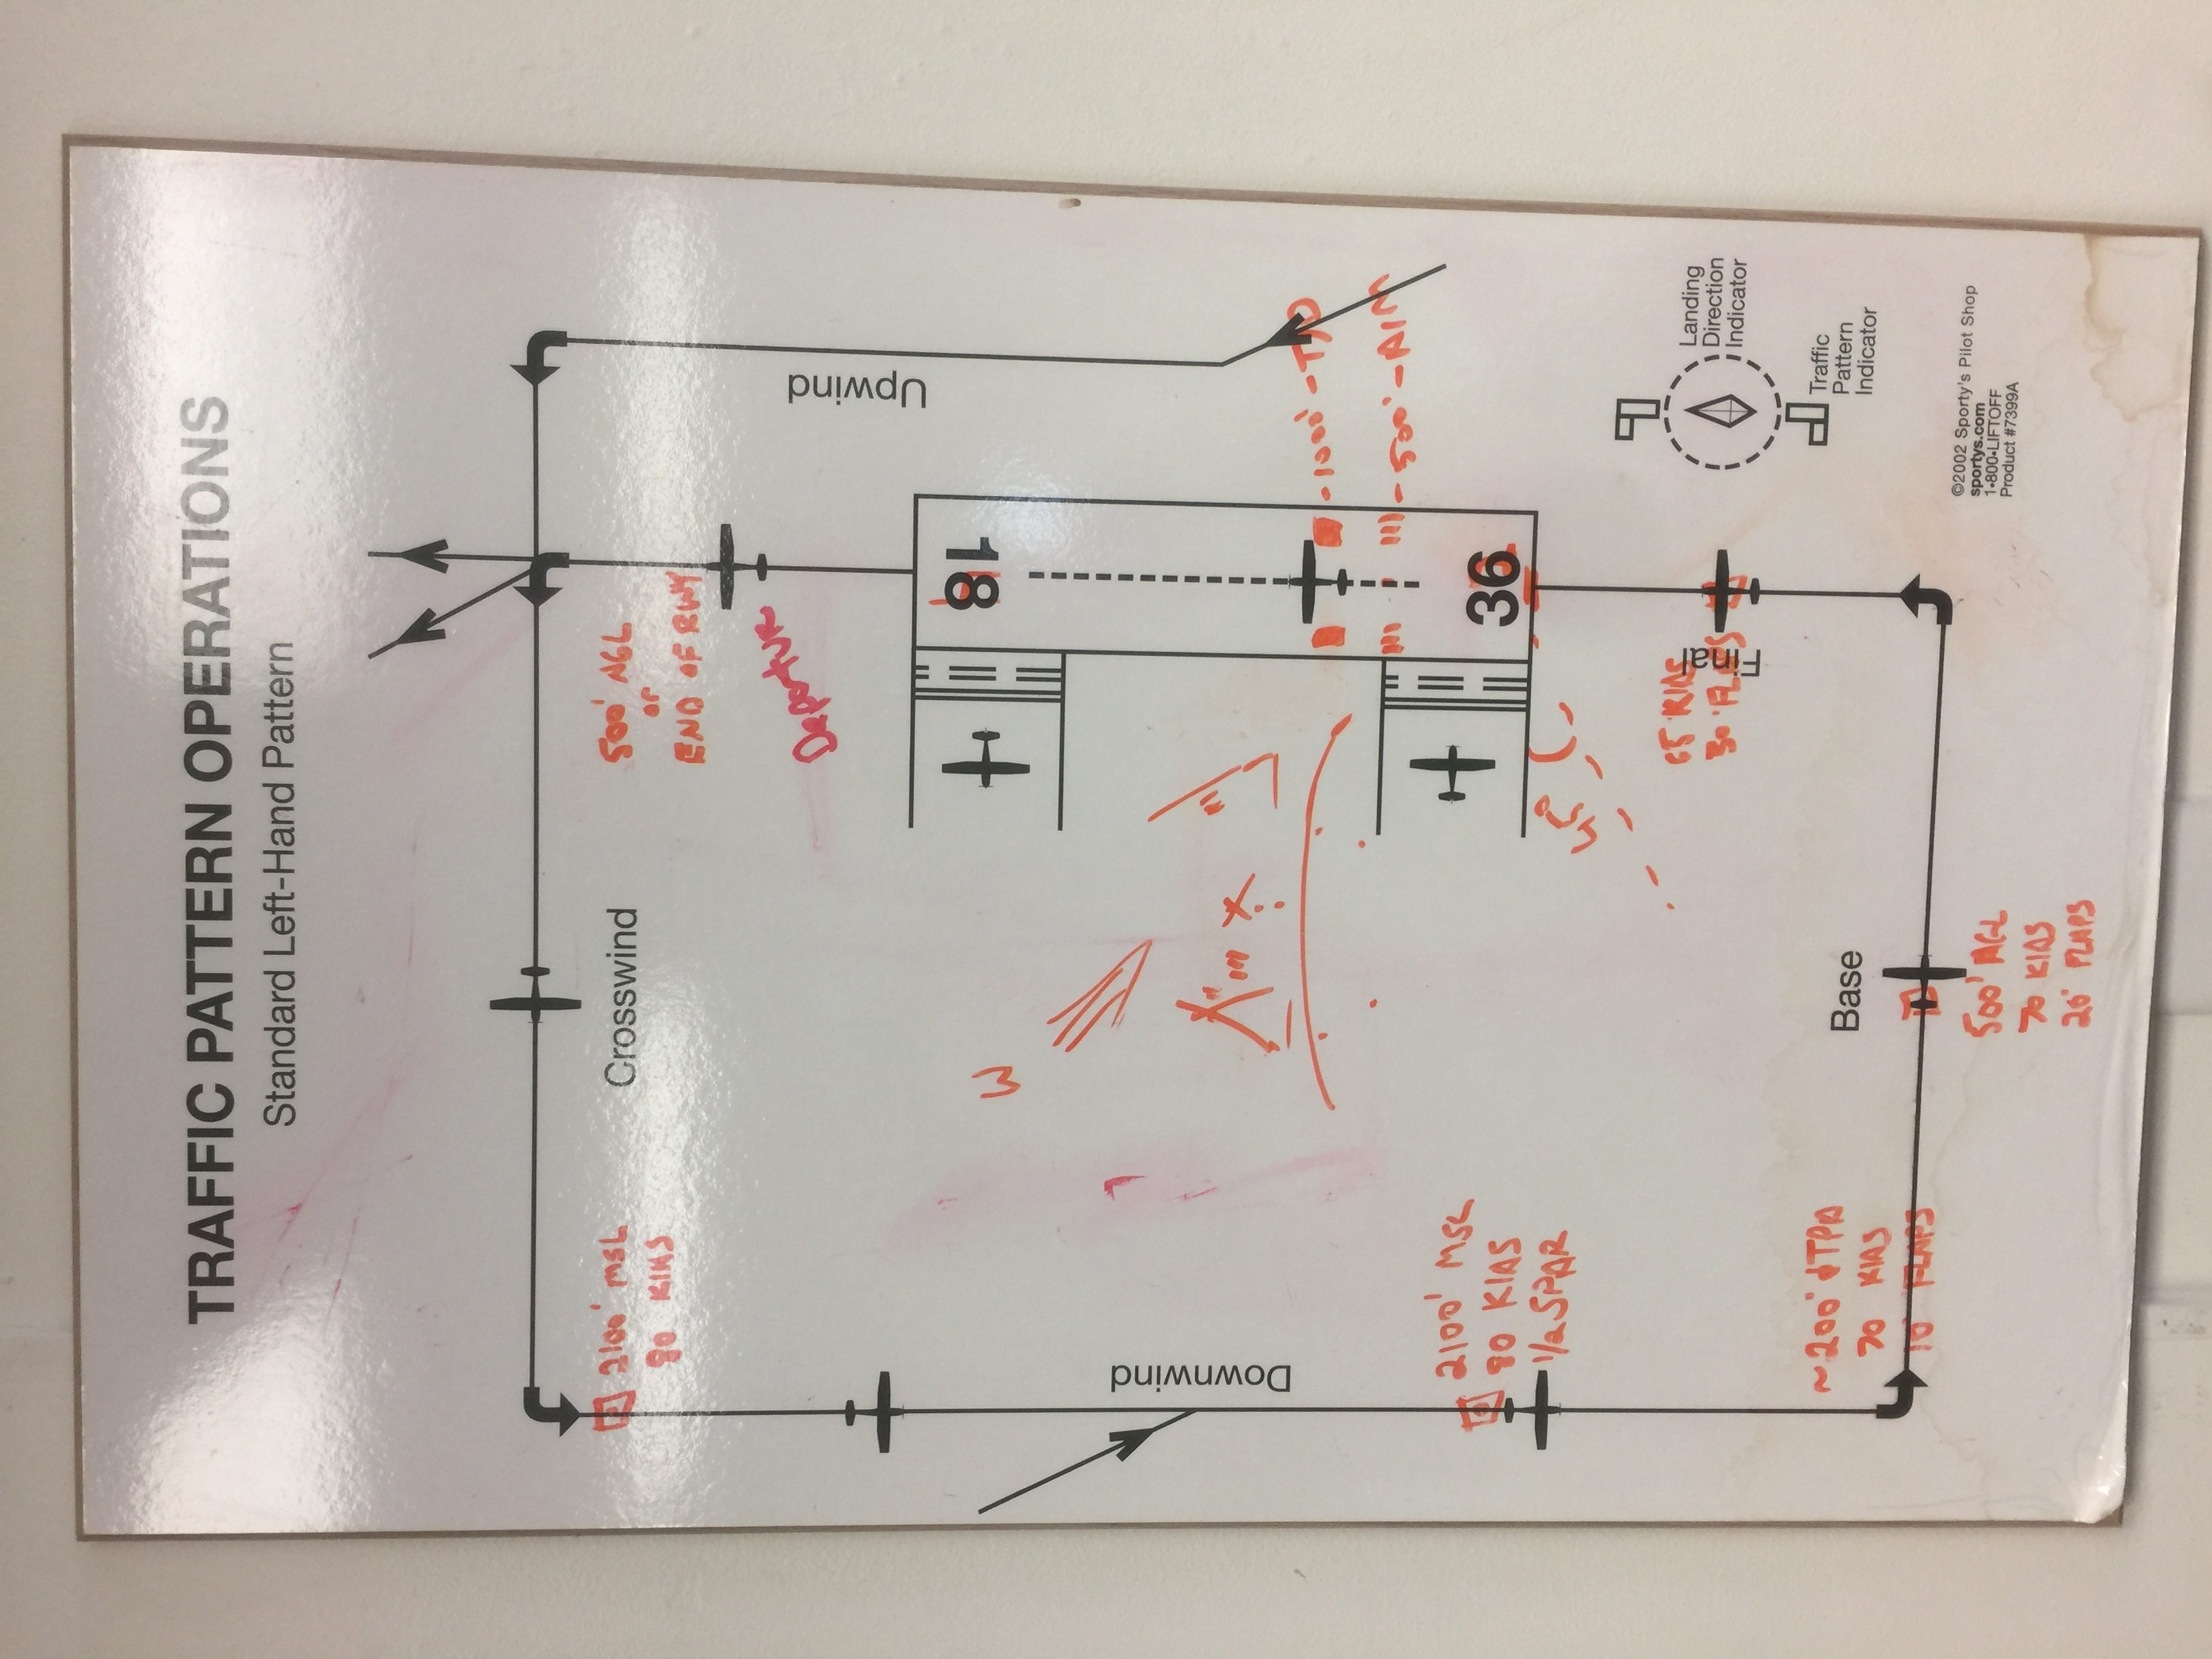 TRAFFIC PATTERN OPERATIONS
Standard Left-Hand Pattern
2100' MSL
80 KIAS
Crosswind
500' AGL
or
END OF RWY
Departur
Upwind
18
W
Downwind
-1000'-T/D
-500'-AIM
2100' MSL
80 KIAS
1/2 SPAR
36
45°
65 KIAS
30° FLAPS
Final
Landing
Direction
Indicator
Traffic
Pattern
Indicator
~200' ↓TPA
70 KIAS
10° FLAPS
Base
500' AGL
70 KIAS
20° FLAPS
©2002 Sporty's Pilot Shop
sportys.com
1•800•LIFTOFF
Product #7399A